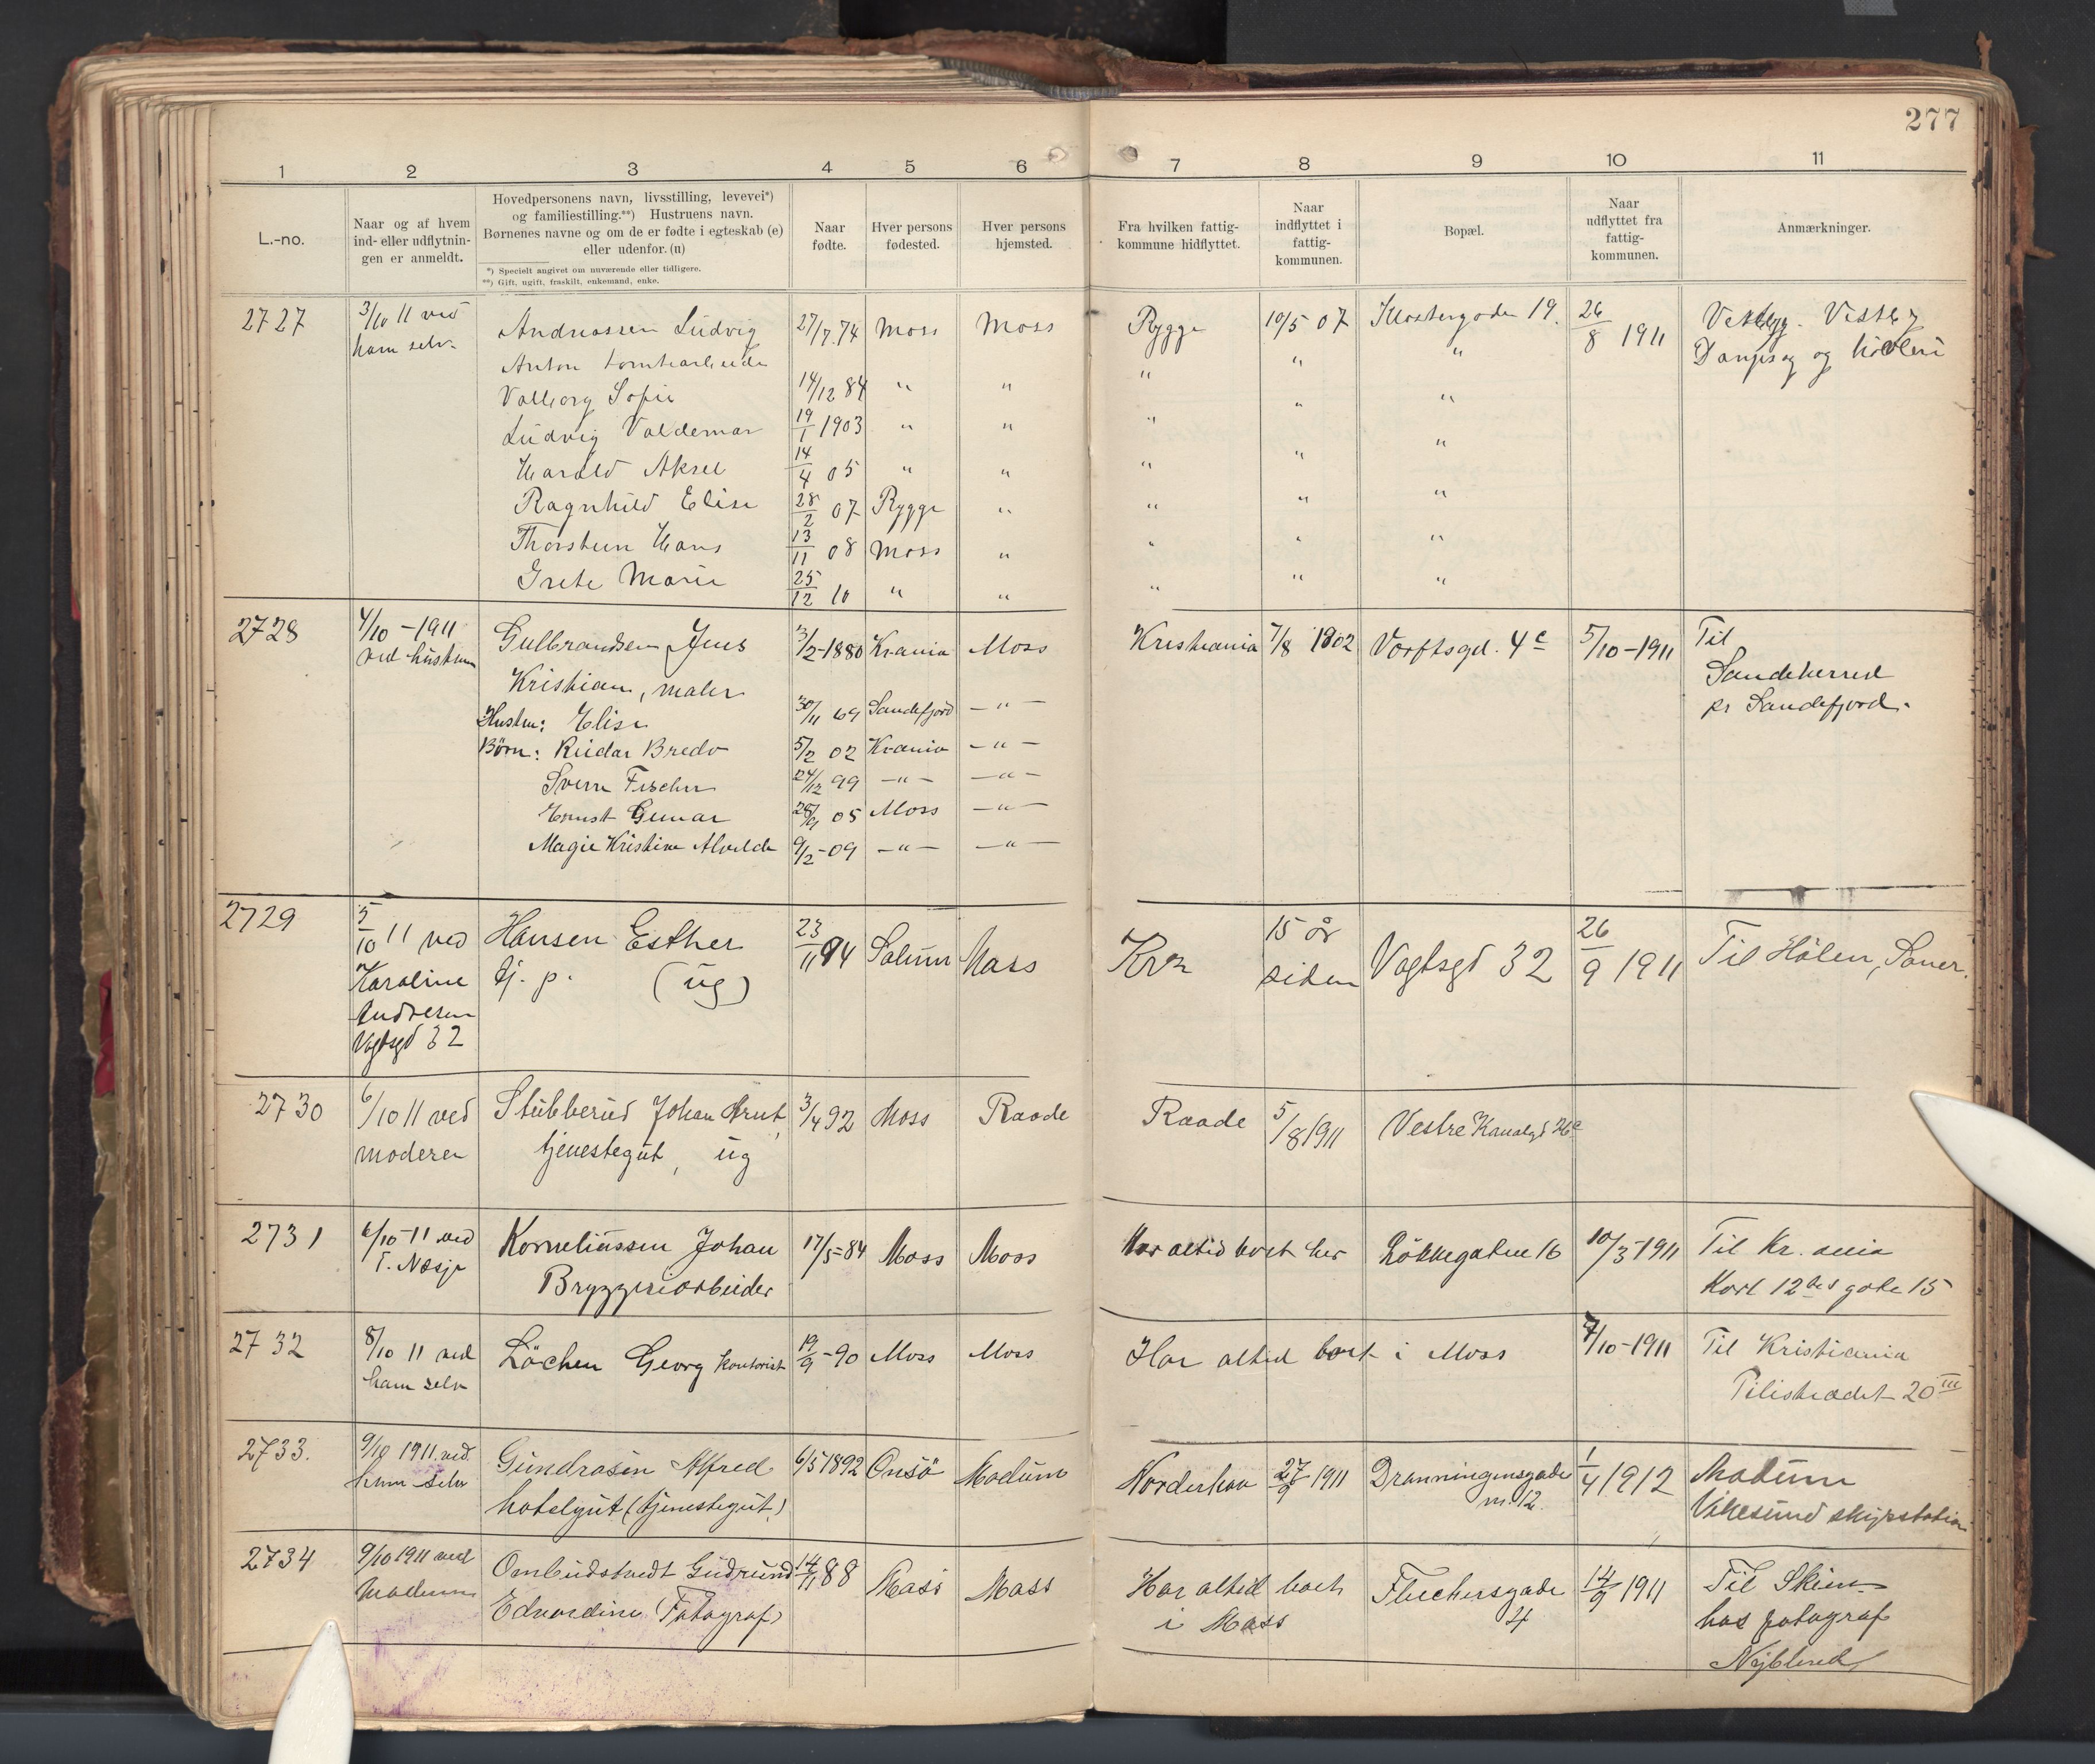 277
1 2 3 4 5 6 7 8 9 10 11
L.-no.
Naar og af hvem
ind- eller udflytnin-
gen er anmeldt.
Hovedpersonens navn, livsstilling, levevei*)
og familiestilling.**) Hustruens navn.
Børnenes navne og om de er fødte i egteskab (e)
eller udenfor. (u)
*) Specielt angivet om nuværende eller tidligere.
**) Gift, ugift, fraskilt, enkemand, enke.
Naar
fødte.
Hver persons
fødested.
Hver persons
hjemsted.
Fra hvilken fattig-
kommune hidflyttet.
Naar
indflyttet i
fattig-
kommunen.
Bopæl.
Naar
udflyttet fra
fattig-
kommunen.
Anmærkninger.
2727 3/10 11 ved Andreassen Ludvig 27/7.74 Moss Moss Rygge 10/5 07 Klostergaden 19. 26/8 1911 Vestby
ham selv. Anton tomtearbeider " " " Dampsag og høvleri
Valborg Sofie 14/12 84 " " " " "
Ludvig Valdemar 19/1 1903 " " " " "
Harald Aksel 14/4 05 " " " " "
Ragnhild Elise 28/2 07 Rygge " " " "
Thorstein Hans 13/11 08 Moss " " " "
Grete Marie 25/12 10 " " " " "
2728 4/10 - 1911 Gulbrandsen Jens 3/2-1880 Kr.ania Moss Kristiania 7/8 1902 Værftsgd. 4c 5/10-1911 Til
ved hustruen Kristian, maler Sandeherred
Hustru: Elise 30/11 69 Sandefjord - " - pr Sandefjord.
Børn: Reidar Bredo 5/2 02 Kr.ania - " -
Sverre Fischer 24/12 99 - " - - " -
Ernst Gunar 28/9 05 Moss - " -
Magie Kristine Alvilde 9/2-09 - " - - " -
2729 5/10 11 ved Hansen Esther 23/11 94 Solum Moss Kra 15 år Vogtsgd 32 26/9 1911 Til Hølen, Soner.
Karoline tj. p. (ug) siden
Andresen
Vogtsgd 32
2730 6/10 11 ved Stubberud Johan Arnt, 3/4 92 Moss Raade Raade 5/8 1911 Vestre Kanalgd 26c
moderen tjenestegut, ug
2731 6/10-11 ved Korneliussen Johan 17/5-84 Moss Moss Har altid boet her Løkkegaten 16 10/3-1911 Til Kr. ania
T. Næsje Bryggeriarbeider Karl 12tes gate 15
2732 8/10 11 ved Løchen Georg kontorist 19/9-90 Moss Moss Har altid boet i Moss 7/10-1911 Til Kristiania
ham selv Pilestrædet 20 III
2733. 9/10 1911. ved Gundrosen Alfred 6/5 1892 Onsø Modum Norderhov 27/9 1911 Dronningensgade 1/4 1912 Modum
ham selv hotelgut (tjenestegut.) nr. 12. Vikesund skysstation
2734 9/10 1911 ved Ombudstvedt Gudrund 14/11 88 Moss Moss Har altid boet Fleichersgade 14/9 1911 Til Skien
moderen Edvardine (Fotograf) i Moss 4 hos fotograf
Nyblin